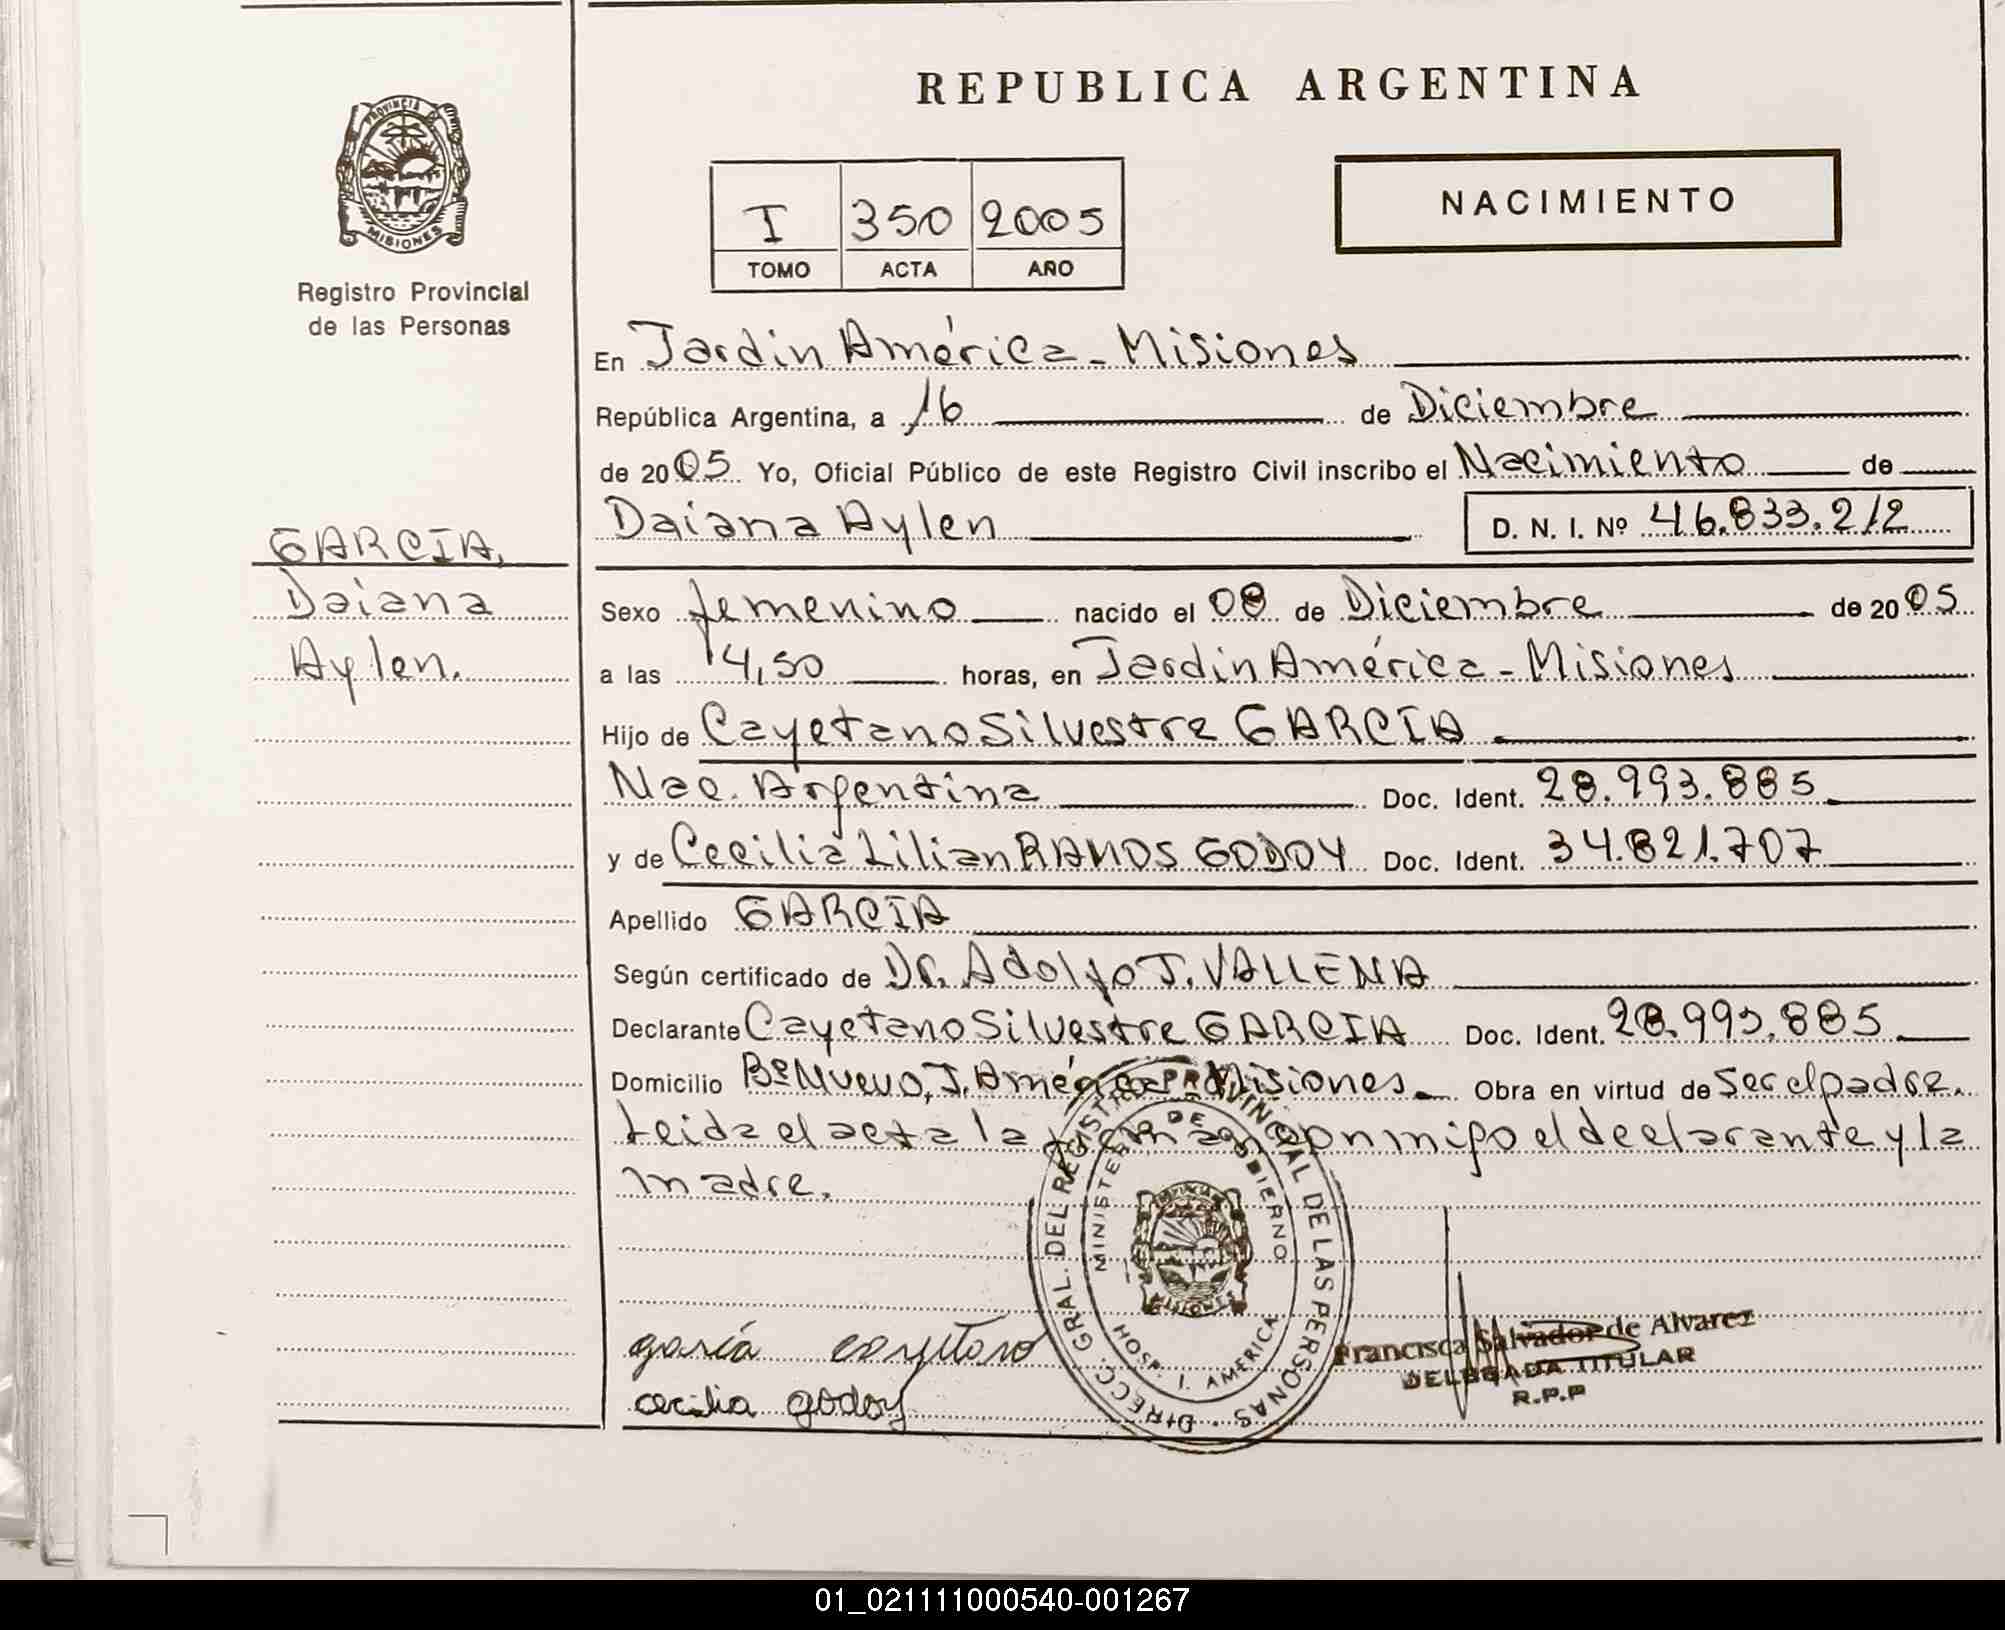 REPUBLICA ARGENTINA
PROVINCIA DE
MISIONES
Registro Provincial
de las Personas
I 350 2005
TOMO ACTA AÑO
NACIMIENTO
GARCIA,
Daiana
Aylen.
En Jardin América - Misiones
República Argentina, a 16 de Diciembre
de 2005 Yo, Oficial Público de este Registro Civil inscribo el Nacimiento de
Daiana Aylen D. N. I. Nº 46.833.212
Sexo femenino nacido el 08 de Diciembre de 2005
a las 14,50 horas, en Jardin América - Misiones
Hijo de Cayetano Silvestre GARCIA
Nac. Argentina Doc. Ident. 28.993.885
y de Cecilia Lilian RAMOS GODOY Doc. Ident. 34.821.707
Apellido GARCIA
Según certificado de Dr. Adolfo J. VALLENA
Declarante Cayetano Silvestre GARCIA Doc. Ident. 28.993.885
Domicilio Bº Nuevo, J. América - Misiones Obra en virtud de ser el padre.
Leida el acta la firman conmigo el declarante y la
madre.
DIRECC. GRAL. DEL REGISTRO PROVINCIAL DE LAS PERSONAS
MINISTERIO DE GOBIERNO
MISIONES
HOSP. J. AMERICA
garcía cayetano
cecilia godoy
Francisca Salvador de Alvarez
DELEGADA TITULAR
R.P.P
01_021111000540-001267